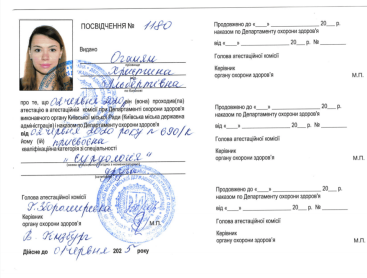 ПОСВІДЧЕННЯ № 1180
Видано Оганян
Христина
Альбертівна
про те, що 02 червня 2020 (вона) проходив(ла)
атестацію в атестаційній комісії при Департаменті охорони здоров'я
виконавчого органу Київської міської Ради (Київська міська державна
адміністрація) і наказом по Департаменту охорони здоров'я
від 02 червня 2020 року № 690/к
йому (їй) присвоєна
кваліфікаційна категорія зі спеціальності
"сурдологія"
друга
Голова атестаційної комісії
Керівник
органу охорони здоров'я
М.П.
Дійсне до червня 2025 року
Продовжено до «____» ____________ 20___ р.
наказом по Департаменту охорони здоров'я
від «____» ____________ 20___ р. № ______
Голова атестаційної комісії
Керівник
органу охорони здоров'я М.П.
Продовжено до «____» ____________ 20___ р.
наказом по Департаменту охорони здоров'я
від «____» ____________ 20___ р. № ______
Голова атестаційної комісії
Керівник
органу охорони здоров'я М.П.
Продовжено до «____» ____________ 20___ р.
наказом по Департаменту охорони здоров'я
від «____» ____________ 20___ р. № ______
Голова атестаційної комісії
Керівник
органу охорони здоров'я М.П.